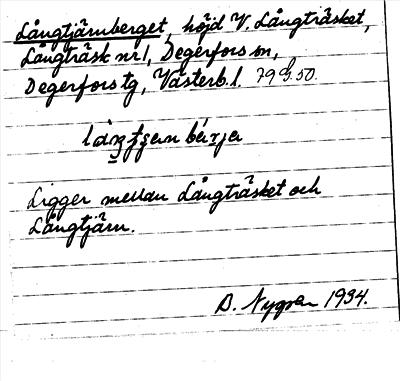 Långtjärnberget, höjd V. Långträsket,
Långträsk nr 1, Degerfors sn,
Degerfors tg, Västerb. l. 79 G. 50.
Ligger mellan Långträsket och
Långtjärn.
D. Nygren 1934.